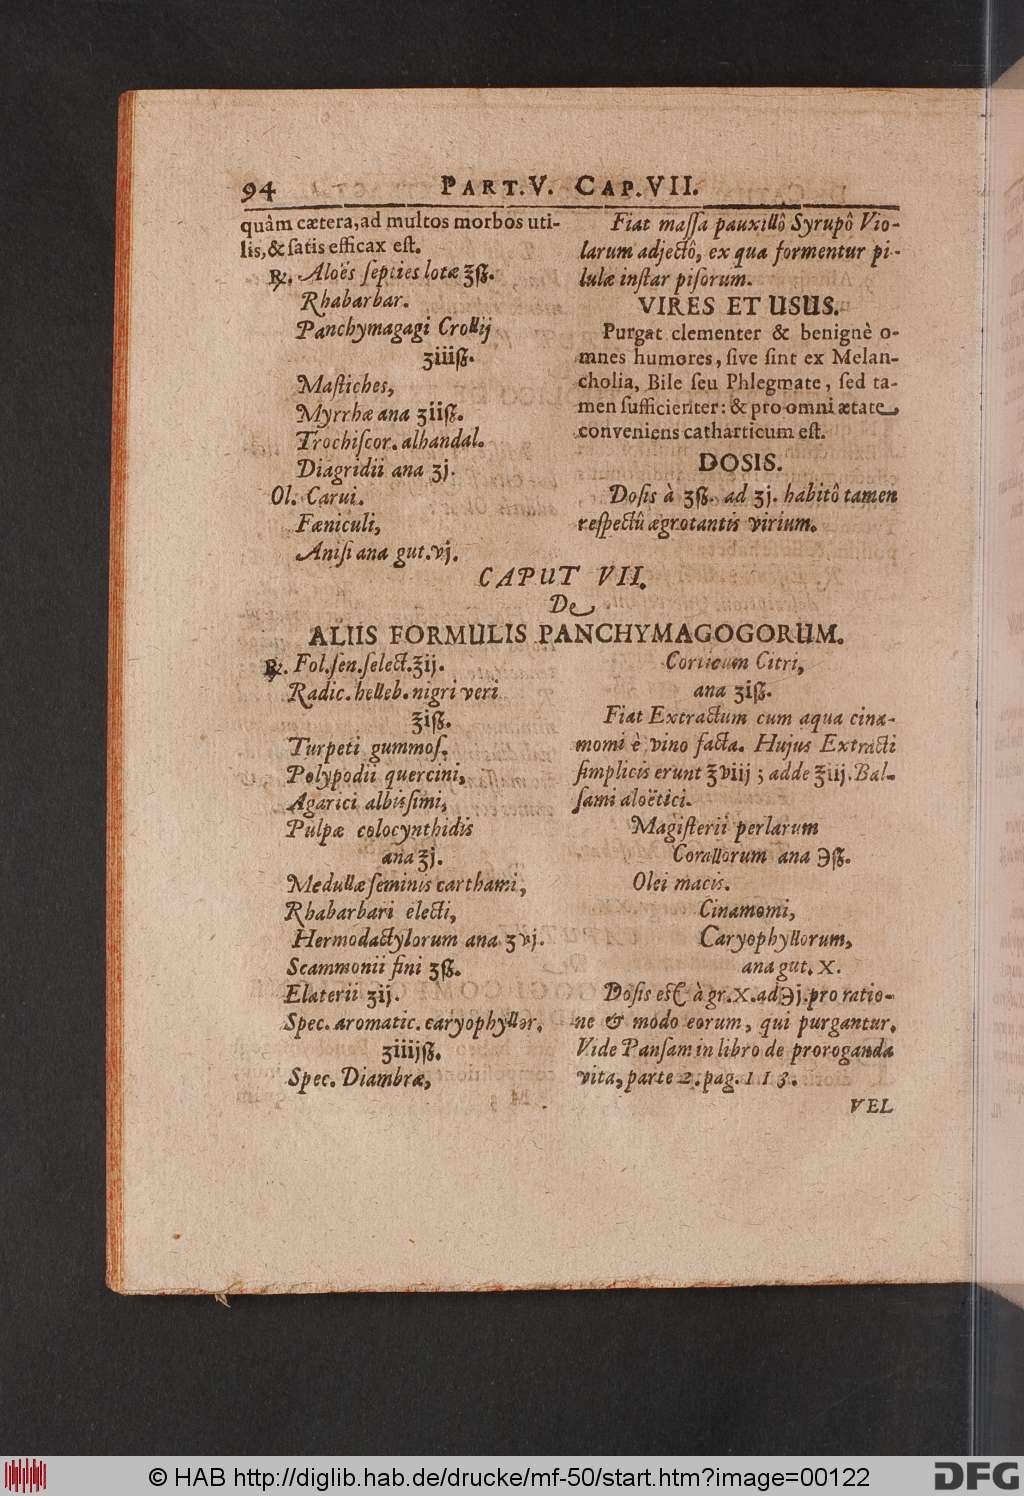 94 PART.V. CAP.VII.
quâm cætera, ad multos morbos uti-
lis, & ſatis efficax eſt.
℞. Aloës ſepties lotæ ℥ß.
Rhabarbar.
Panchymagagi Crollij
ʒiiiß.
Maſtiches,
Myrrhæ ana ʒiiß.
Trochiſcor. alhandal.
Diagridii ana ʒj.
Ol. Carui.
Fæniculi,
Aniſi ana gut. vj.
Fiat maſſa pauxillô Syrupô Vio-
larum adjectô, ex qua formentur pi-
lulæ inſtar piſorum.
VIRES ET USUS.
Purgat clementer & benignè o-
mnes humores, ſive ſint ex Melan-
cholia, Bile ſeu Phlegmate, ſed ta-
men ſufficienter: & pro omni ætate
conveniens catharticum eſt.
DOSIS.
Doſis à ʒß. ad ʒj. habitô tamen
reſpectû ægrotantis virium.
CAPUT VII.
De
ALIIS FORMULIS PANCHYMAGOGORUM.
℞. Fol. ſen. ſelect. ℥ij.
Radic. helleb. nigri veri
℥iß.
Turpeti gummoſ.
Polypodii quercini,
Agarici albiſsimi,
Pulpæ colocynthidis
ana ℥j.
Medullæ ſeminis carthami,
Rhabarbari electi,
Hermodactylorum ana ʒvj.
Scammonii fini ʒß.
Elaterii ʒij.
Spec. aromatic. caryophyllor.
ʒiiijß.
Spec. Diambræ,
Corticum Citri,
ana ʒiß.
Fiat Extractum cum aqua cina-
momi è vino facta. Hujus Extracti
ſimplicis erunt ℥viij; adde ℥iij. Bal-
ſami aloëtici.
Magiſterii perlarum
Corallorum ana ℈ß.
Olei macis.
Cinamomi,
Caryophyllorum,
ana gut. X.
Doſis eſt à gr. X. ad ℈j. pro ratio-
ne & modo eorum, qui purgantur.
Vide Panſam in libro de proroganda
vita, parte 2. pag. 113.
VEL
© HAB http://diglib.hab.de/drucke/mf-50/start.htm?image=00122
DFG